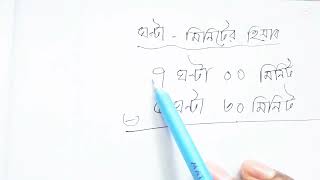 ঘন্টা - মিনিটের হিসাব
৭ ঘন্টা ০০ মিনিট
ঘন্টা ২০ মিনিট